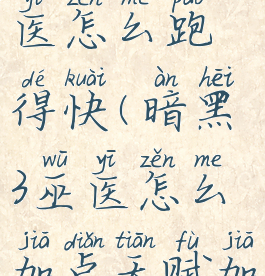 yī zěn me pǎo
医怎么跑
dé kuài àn hēi
得快(暗黑
wū yī zěn me
3巫医怎么
jiā diǎn tiān fù jiā
加点天赋加